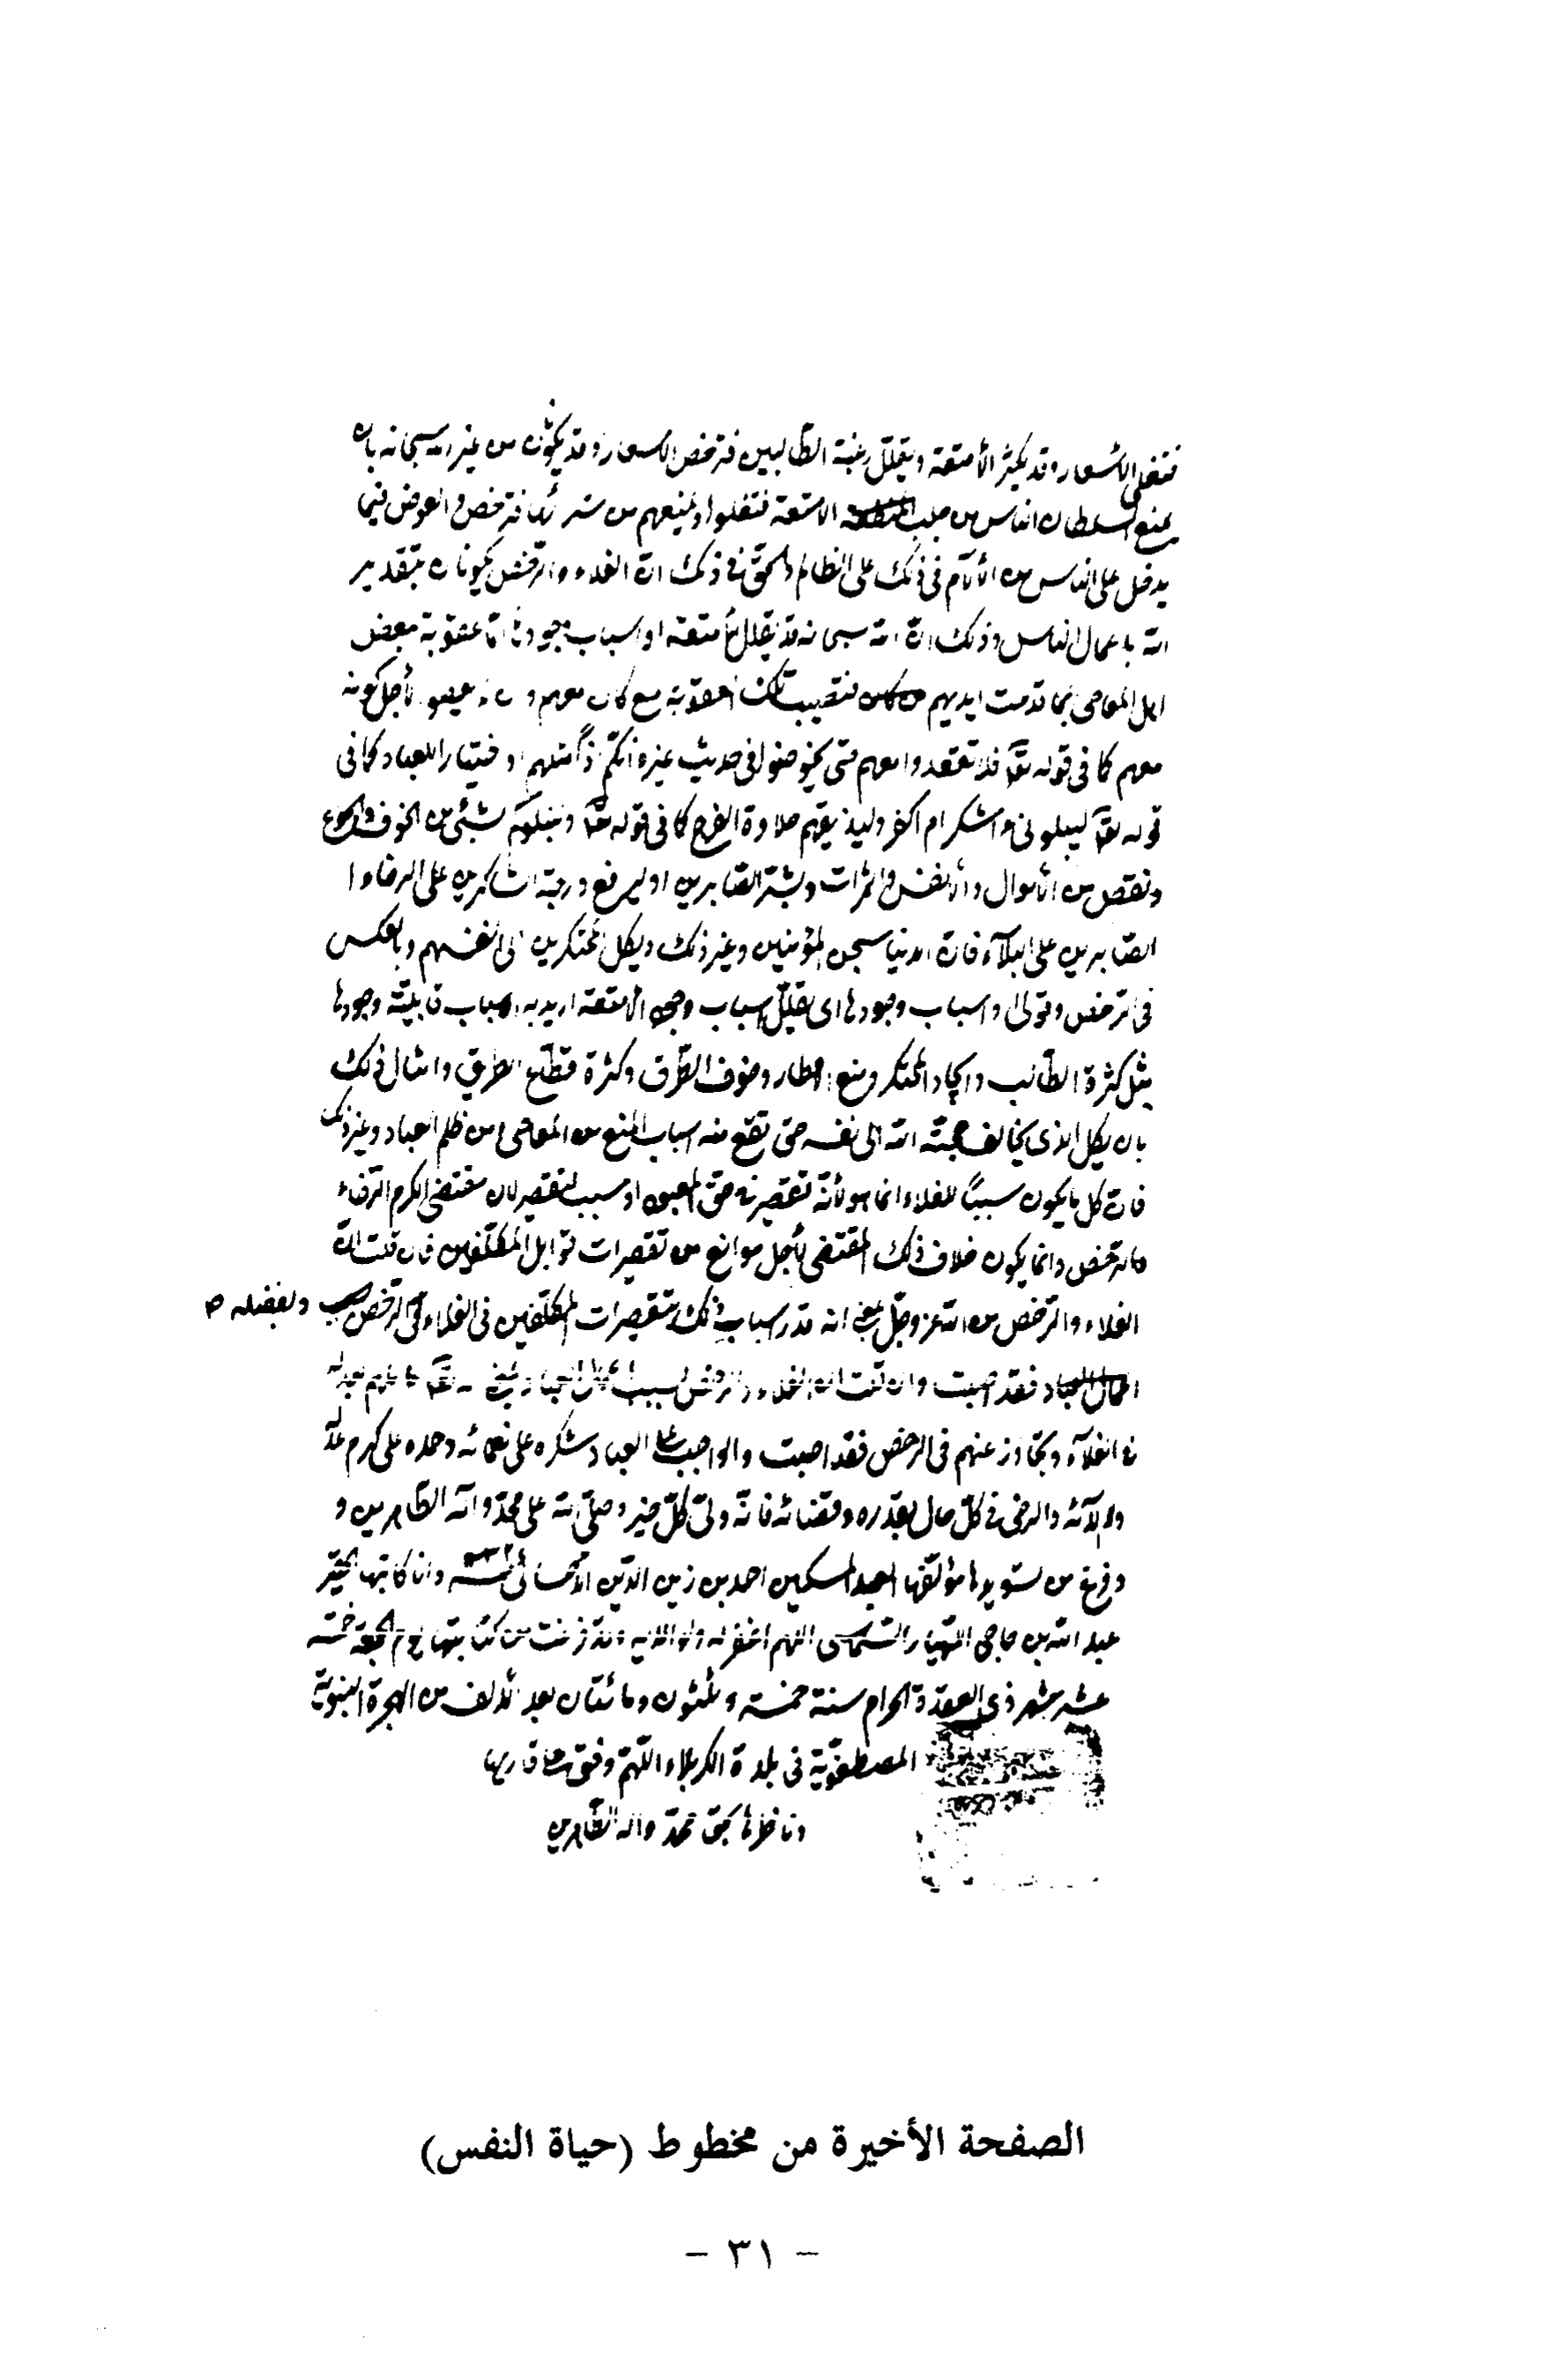 فتغلى الأسعار وقد يكثر الأمتعة ويقلل رغبة الطالبين فترخص الاسعار وقد يكون من غير الله سبحانه بان
يمنع السلطان الناس من جلب الامتعة فتغلوا او يمنعهم من فترخص والعوض فيما
يدخل على الناس من الآلام فى ذلك على الظالم والحق فى ذلك ان الغلاء والرخص يكونان بتقدير
الله باعمال الناس وذلك ان الله سبحانه قد يقلل الأمتعة او اسباب وجودها اما عقوبة لبعض
اهل المعاصى بما قدمت ايديهم فتصيب تلك العقوبة من كان معهم وان لم يعص لأجل كونه
معهم كما فى قوله تعالى فلا تقعدوا معهم حتى يخوضوا فى حديث غيره انكم اذاً مثلهم او اختبارا للعباد كما فى
قوله تعالى ليبلونى ءاشكر ام اكفر وليذيقهم حلاوة الفرج كما فى قوله تعالى ولنبلونكم بشىء من الخوف والجوع
ونقص من الأموال والأنفس والثمرات وبشر الصابرين او ليرفع درجة الشاكرين على الرخاء وا
الصابرين على البلآء فان الدنيا سجن المؤمنين وغير ذلك ويكل المحتكرين الى انفسهم وبالعكس
فى الرخص وقولى واسباب وجودها اى يقلل اسباب وجود الامتعة اريد به اسباب قابلية وجودها
مثل كثرة الطالب وايجاد المحتكر ومنع الامطار وخوف الطرق وكثرة قطاع الطريق وامثال ذلك
بان يكل الذى يخالف محبة الله الى نفسه حتى تقع منه اسباب المنع من المعاصى ومن ظلم العباد وغير ذلك
فان كل ما يكون سبباً للغلاء انما هو لأنه تقصير فى حق المعبود او سبب لتقصير لان مقتضى الكرم الرخاء
والرخص وانما يكون خلاف ذلك المقتضى لأجل موانع من تقصيرات قوابل المكلفين فان قلت ان
الغلاء والرخص من الله عز وجل بمعنى انه قدر اسباب ذلك بتقصيرات المكلفين فى الغلاء وفى الرخص وبفضله
اعمال العباد فقد اصبت وان قلت ان الغلاء والرخص بسبب اعمال العباد بمعنى تعالى عاملهم بعدله
فى الغلآء وتجاوز عنهم فى الرخص فقد اصبت والواجب على العباد شكره على نعمائه وحمده على كرم
والآئه والرضى فى كل حال بقدره وقضائه فانه ولى كل خير وصلى الله على محمد وآله الطاهرين و
وفرغ من تسويدها مؤلفها العبد المسكين احمد بن زين الدين الأحسائى وانا كاتبها الحقير
عبد الله بن حاجى اللهم اغفر له ولوالديه وقد فرغت من كتابتها يوم الجمعة خمسة
عشر شهر ذى القعدة الحرام سنة خمسة وثلثون ومائتان بعد الألف من الهجرة النبوية
المصطفوية فى بلدة الكربلاء اللهم وفق قاريها
وناظرها بحق محمد واله الطاهرين
الصفحة الأخيرة من مخطوط (حياة النفس)
- ٣١ -